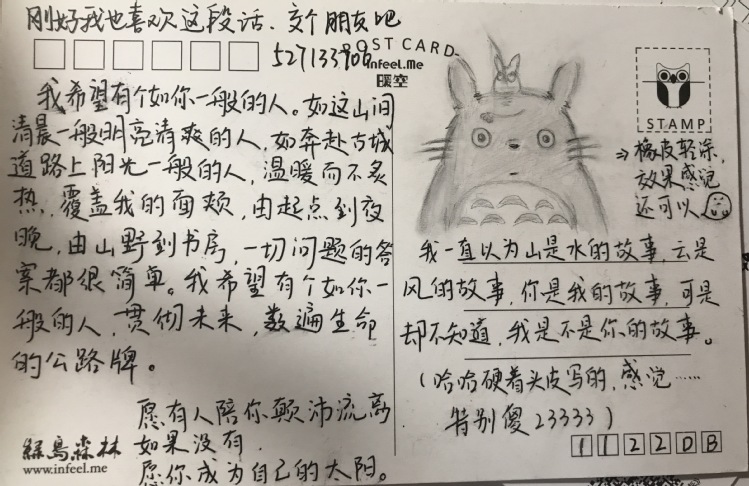 刚好我也喜欢这段话、交个朋友吧
527133906
POST CARD
infeel.me
暖空
我希望有个如你一般的人。如这山间
清晨一般明亮清爽的人，如奔赴古城
道路上阳光一般的人，温暖而不炙
热，覆盖我的面颊，由起点到夜
晚，由山野到书房，一切问题的答
案都很简单。我希望有个如你一
般的人，贯彻未来，数遍生命
的公路牌。
愿有人陪你颠沛流离
如果没有，
愿你成为自己的太阳。
绿鸟森林
www.infeel.me
STAMP
⇒橡皮轻涂，
效果感觉
还可以
我一直以为山是水的故事，云是
风的故事，你是我的故事，可是
却不知道，我是不是你的故事。
（哈哈硬着头皮写的，感觉……
特别傻23333）
1122DB